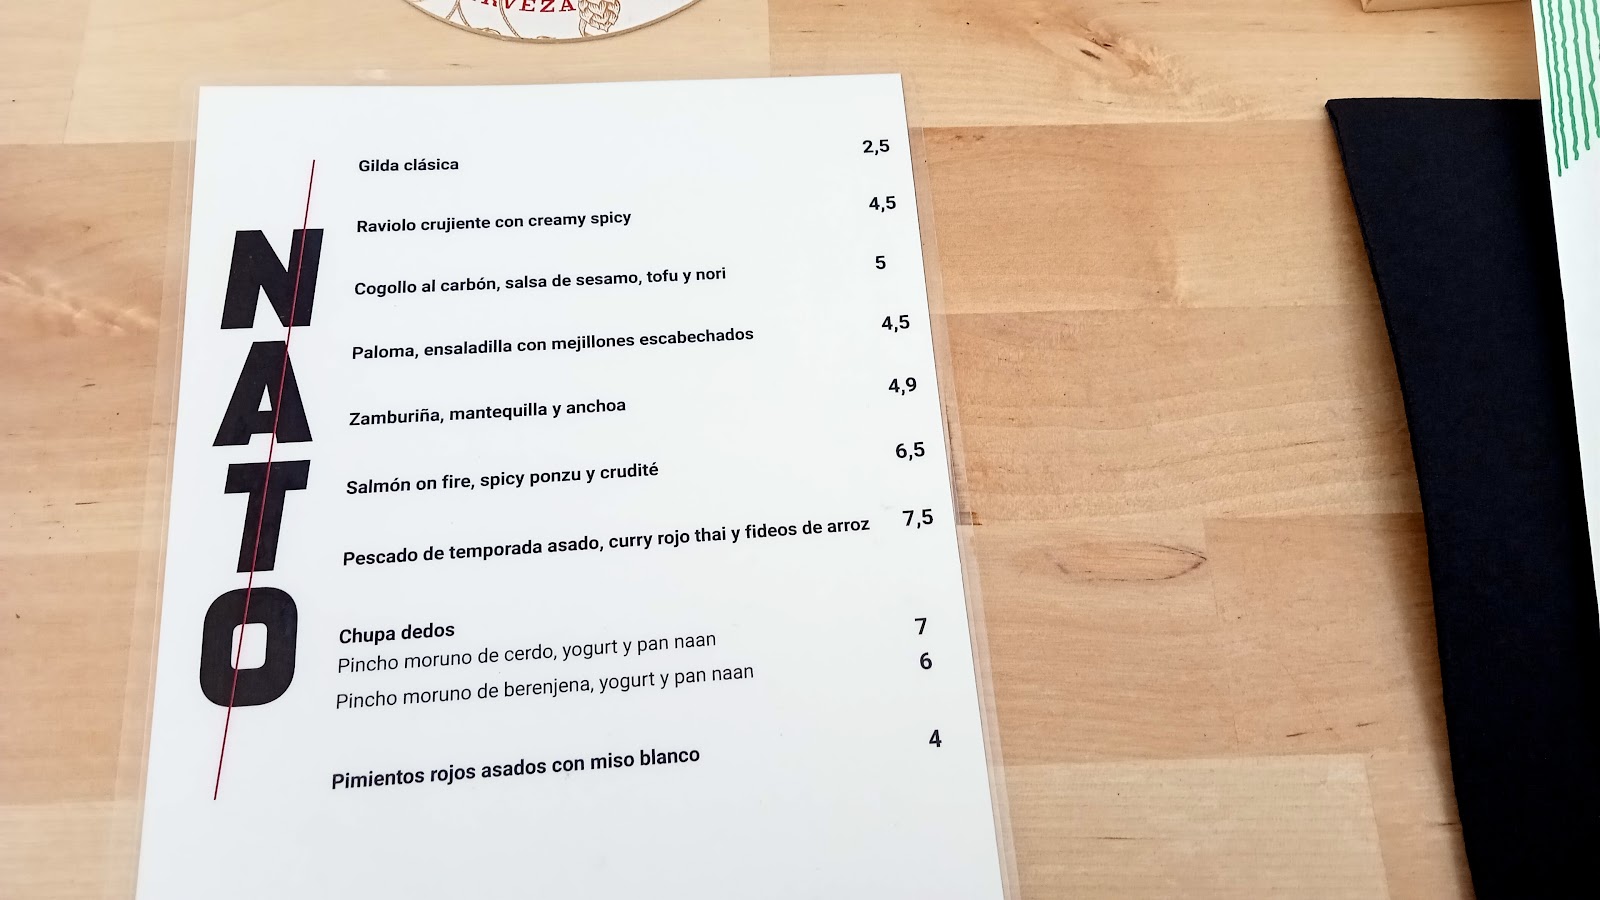 Gilda clásica 2,5
Raviolo crujiente con creamy spicy 4,5
Cogollo al carbón, salsa de sesamo, tofu y nori 5
Paloma, ensaladilla con mejillones escabechados 4,5
Zamburiña, mantequilla y anchoa 4,9
Salmón on fire, spicy ponzu y crudité 6,5
Pescado de temporada asado, curry rojo thai y fideos de arroz 7,5
Chupa dedos
Pincho moruno de cerdo, yogurt y pan naan 7
Pincho moruno de berenjena, yogurt y pan naan 6
Pimientos rojos asados con miso blanco 4
NATO